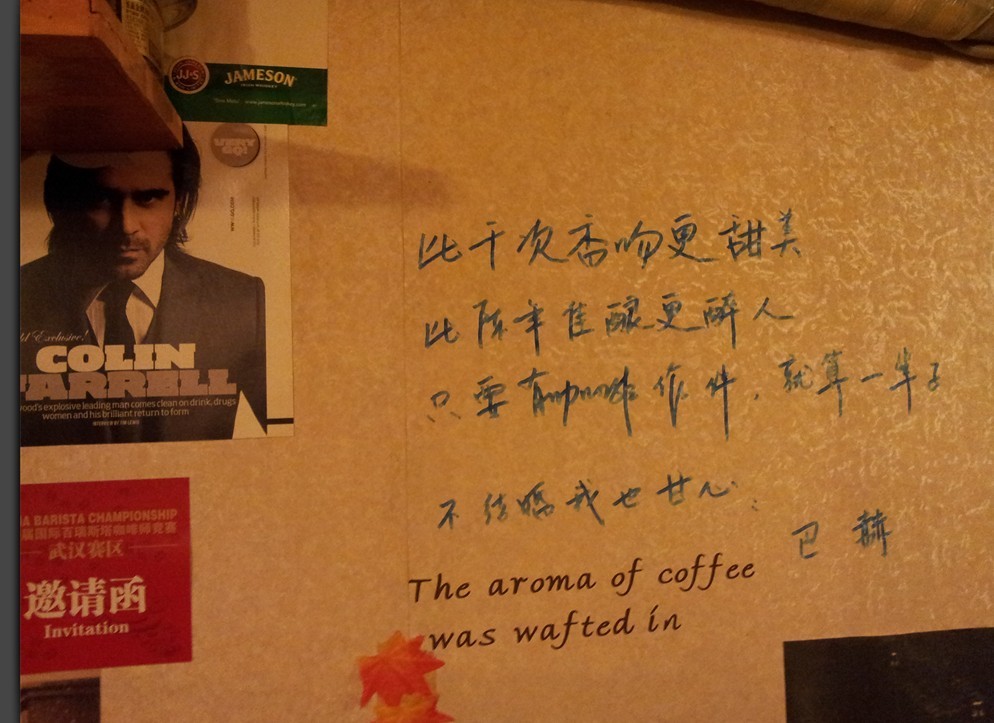 JJ&S
JAMESON
VERY
GQ!
d Exclusive!
COLIN
ARRELL
ood's explosive leading man comes clean on drink, drugs
women and his brilliant return to form
比千次香吻更甜美
比陈年佳酿更醉人
只要有咖啡作伴，就算一辈子
不结婚我也甘心
巴赫
The aroma of coffee
was wafted in
A BARISTA CHAMPIONSHIP
国际百瑞斯塔咖啡师竞赛
武汉赛区
邀请函
Invitation